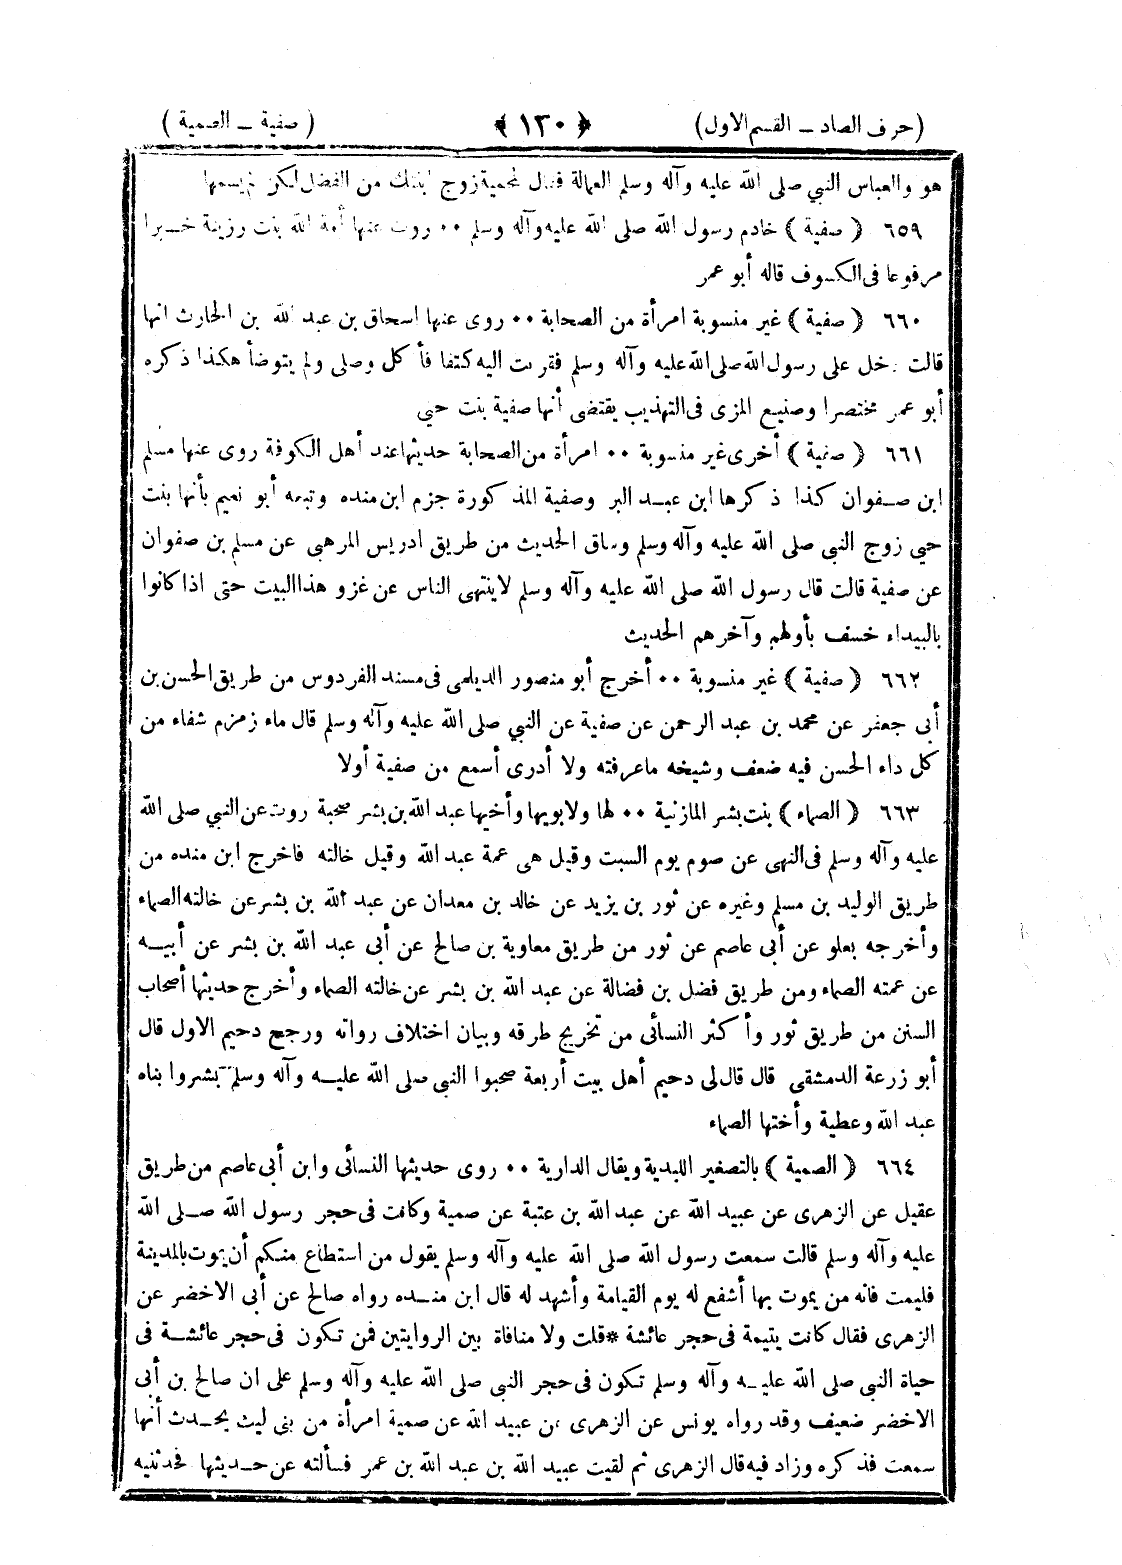 (حرف الصاد ــ القسم الاول) ﴿١٣٠﴾ (صفية ــ الصمية)
هو والعباس النبي صلى الله عليه وآله وسلم العمالة فقال لمحمية زوج ابنتك من الفضل لكن لم يسمها
٦٥٩ ﴿ صفية ﴾ خادم رسول الله صلى الله عليه وآله وسلم ٠٠ روت عنها أمة الله بنت رزينة خبرا
مرفوعا فى الكسوف قاله أبو عمر
٦٦٠ ﴿ صفية ﴾ غير منسوبة امرأة من الصحابة ٠٠ روى عنها اسحاق بن عبد الله بن الحارث انها
قالت دخل على رسول الله صلى الله عليه وآله وسلم فقربت اليه كتفا فأكل وصلى ولم يتوضأ هكذا ذكره
أبو عمر مختصرا وصنيع المزى فى التهذيب يقتضى أنها صفية بنت حيي
٦٦١ ﴿ صفية ﴾ أخرى غير منسوبة ٠٠ امرأة من الصحابة حديثها عند أهل الكوفة روى عنها مسلم
ابن صفوان كذا ذكرها ابن عبد البر وصفية المذكورة جزم ابن منده وتبعه أبو نعيم بأنها بنت
حيي زوج النبي صلى الله عليه وآله وسلم وساق الحديث من طريق ادريس المرهبى عن مسلم بن صفوان
عن صفية قالت قال رسول الله صلى الله عليه وآله وسلم لاينتهى الناس عن غزو هذا البيت حتى اذا كانوا
بالبيداء خسف بأولهم وآخرهم الحديث
٦٦٢ ﴿ صفية ﴾ غير منسوبة ٠٠ أخرج أبو منصور الديلمى فى مسند الفردوس من طريق الحسن بن
أبى جعفر عن محمد بن عبد الرحمن عن صفية عن النبي صلى الله عليه وآله وسلم قال ماء زمزم شفاء من
كل داء الحسن فيه ضعف وشيخه ماعرفته ولا أدرى أسمع من صفية أولا
٦٦٣ ﴿ الصماء ﴾ بنت بشر المازنية ٠٠ لها ولابويها وأخيها عبد الله بن بشر صحبة روت عن النبي صلى الله
عليه وآله وسلم فى النهى عن صوم يوم السبت وقيل هى عمة عبد الله وقيل خالته فاخرج ابن منده من
طريق الوليد بن مسلم وغيره عن ثور بن يزيد عن خالد بن معدان عن عبد الله بن بشر عن خالته الصماء
وأخرجه بعلو عن أبى عاصم عن ثور من طريق معاوية بن صالح عن أبى عبد الله بن بشر عن أبيه
عن عمته الصماء ومن طريق فضل بن فضالة عن عبد الله بن بشر عن خالته الصماء وأخرج حديثها أصحاب
السنن من طريق ثور وأكثر النسائى من تخريج طرقه وبيان اختلاف رواته ورجح دحيم الاول قال
أبو زرعة الدمشقى قال قال لى دحيم أهل بيت أربعة صحبوا النبي صلى الله عليه وآله وسلم بشر وابناه
عبد الله وعطية وأختها الصماء
٦٦٤ ﴿ الصمية ﴾ بالتصغير الليدية ويقال الدارية ٠٠ روى حديثها النسائى وابن أبى عاصم من طريق
عقيل عن الزهرى عن عبيد الله عن عبد الله بن عتبة عن صمية وكانت فى حجر رسول الله صلى الله
عليه وآله وسلم قالت سمعت رسول الله صلى الله عليه وآله وسلم يقول من استطاع منكم أن يموت بالمدينة
فليمت فانه من يموت بها أشفع له يوم القيامة وأشهد له قال ابن منده رواه صالح عن أبى الاخضر عن
الزهرى فقال كانت يتيمة فى حجر عائشة * قلت ولا منافاة بين الروايتين فمن تكون فى حجر عائشة فى
حياة النبي صلى الله عليه وآله وسلم تكون فى حجر النبي صلى الله عليه وآله وسلم على ان صالح بن أبى
الاخضر ضعيف وقد رواه يونس عن الزهرى عن عبيد الله عن صمية امرأة من بنى ليث يحدث أنها
سمعت فذكره وزاد فيه قال الزهرى ثم لقيت عبيد الله بن عبد الله بن عمر فسألته عن حديثها فحدثنيه